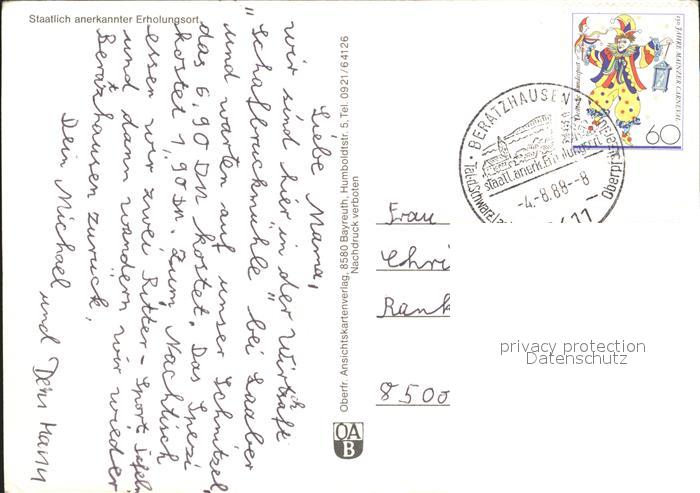 Staatlich anerkannter Erholungsort
Liebe Mama,
wir sind hier in der Wirtschaft
"Schafbruckmühle" bei Laaber
und warten auf unser Schnitzel,
das 6,90 DM kostet. Das Spezi
kostet 1,90 DM. Zum Nachtisch
essen wir zwei Ritter-Sport Tafeln
und dann wandern wir wieder
Beratzhausen zurück.
Dein Michael und Dein Mann
Oberfr. Ansichtskartenverlag, 8580 Bayreuth, Humboldtstr. 5, Tel. 0921/64126
Nachdruck verboten
OA
B
150 JAHRE MAINZER CARNEVAL
Deutsche Bundespost
60
BERATZHAUSEN
staatl. anerk. Erholungsort
Tal d. Schwarz. Laaber
Oberpf
-4.-8.88--8
Frau
Chri
Rank
8500
privacy protection
Datenschutz